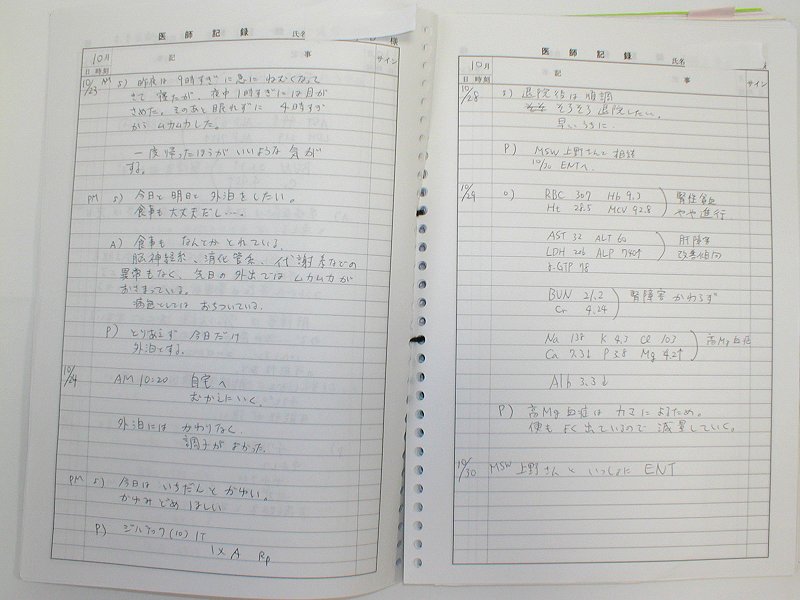 医師記録
氏名
様
10月
記
事
サイン
日 時刻
10/23 M S) 昨夜は 9時すぎに急に ねむくなって
きて寝たが、夜中1時すぎには目が
さめた。そのあと眠れずに 4時すぎ
から ムカムカした。
一度帰ったほうがいいような気が
する。
PM S) 今日と明日と外泊をしたい。
食事も大丈夫だし…。
A) 食事も なんとか とれている。
脳神経系、消化管系、代謝系などの
異常もなく、先日の外出では ムカムカが
おさまっている。
病色としては おちついている。
P) とりあえず 今日だけ
外泊とする。
10/24 AM 10:20 自宅へ
むかえにいく。
外泊には かわりなく
調子がよかった。
PM S) 今日は いちだんと かゆい。
かゆみどめ ほしい
P) ジルテック(10) 1T
1×A Rp
医師記録
氏名
10月
記
事
サイン
日 時刻
10/28 S) 退院後は 順調
そろそろ退院したい。
早いうちに。
P) MSW 上野さんと 相談
10/30 ENTへ
10/29 O) RBC 307 Hb 9.3 腎性貧血
Ht 28.5 MCV 92.8 やや進行
AST 32 ALT 60 肝障害
LDH 206 ALP 740↑ 改善傾向
γ-GTP 78
BUN 21.2 腎障害 かわらず
Cr 4.24
Na 138 K 4.3 Cl 103 高Mg血症
Ca 7.3↓ P 3.8 Mg 4.2↑
Alb 3.3↓
P) 高Mg血症は カマによるため。
便も 出ているので 減量していく。
10/30 MSW 上野さんと いっしょに ENT